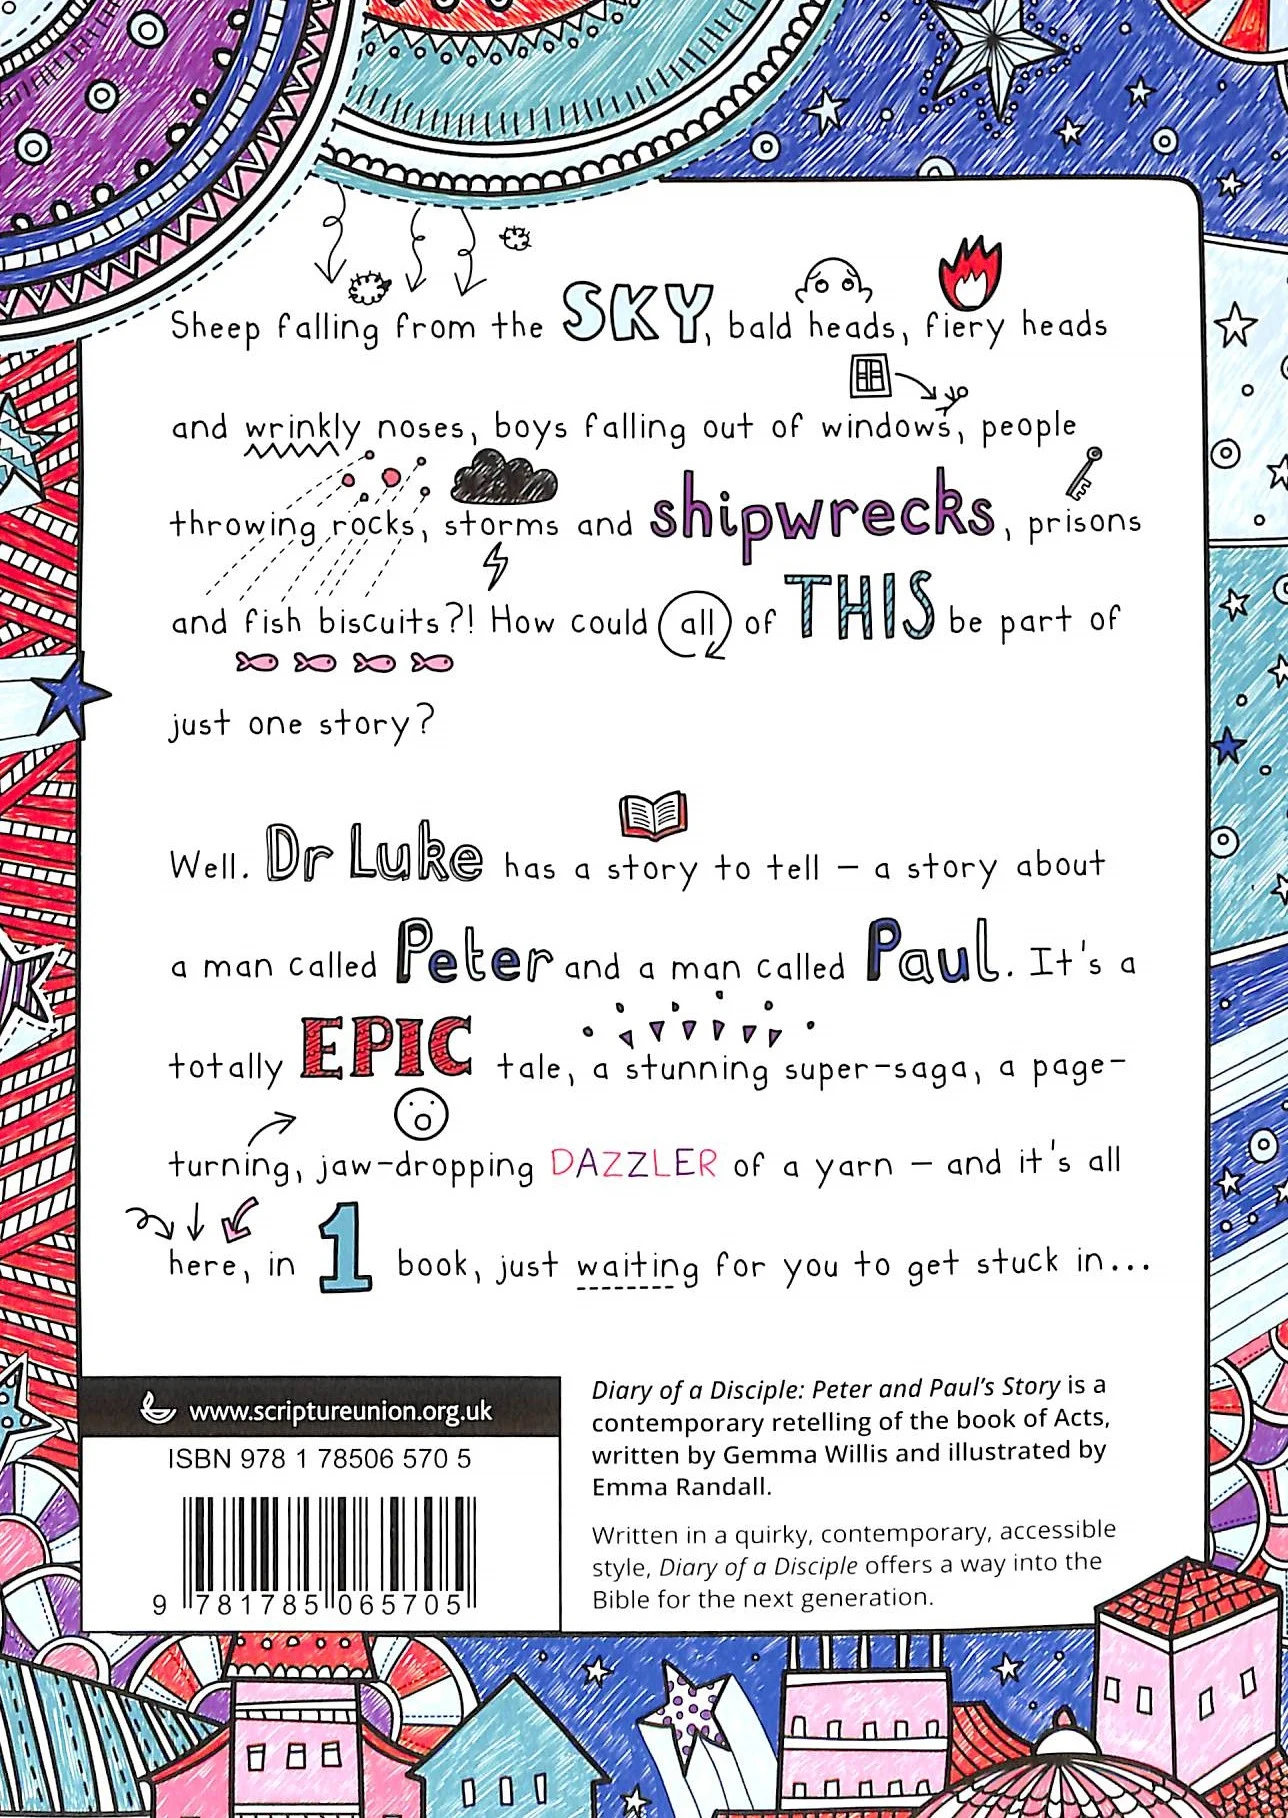 Sheep falling from the SKY, bald heads, fiery heads
and wrinkly noses, boys falling out of windows, people
throwing rocks, storms and shipwrecks, prisons
and fish biscuits?! How could all of THIS be part of
just one story?
Well. Dr Luke has a story to tell – a story about
a man called Peter and a man called Paul. It's a
totally EPIC tale, a stunning super-saga, a page-
turning, jaw-dropping DAZZLER of a yarn – and it's all
here, in 1 book, just waiting for you to get stuck in...
www.scriptureunion.org.uk
ISBN 978 1 78506 570 5
9 781785 065705
Diary of a Disciple: Peter and Paul's Story is a
contemporary retelling of the book of Acts,
written by Gemma Willis and illustrated by
Emma Randall.
Written in a quirky, contemporary, accessible
style, Diary of a Disciple offers a way into the
Bible for the next generation.